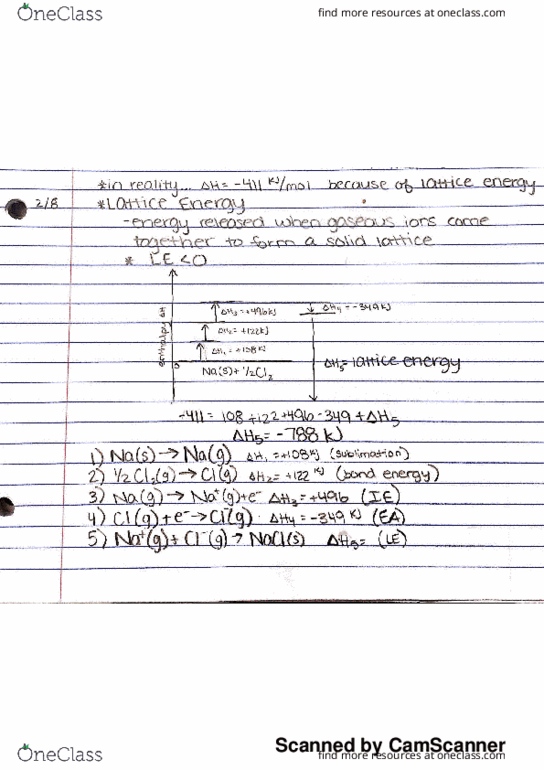 OneClass
find more resources at oneclass.com
*in reality... ΔH = -411 kJ/mol because of lattice energy
2/8 *Lattice Energy
-energy released when gaseous ions come
together to form a solid lattice
* LE <0
enthalpy ΔH
ΔH₃=+496kJ
ΔH₄=-349kJ
ΔH₂=+122kJ
ΔH₁=+108kJ
0
ΔH₅=lattice energy
Na(s)+½Cl₂
-411 = 108+122+496-349+ΔH₅
ΔH₅=-788 kJ
1) Na(s)→Na(g) ΔH₁=+108kJ (sublimation)
2) ½Cl₂(g)→Cl(g) ΔH₂=+122 kJ (bond energy)
3) Na(g)→Na⁺(g)+e⁻ ΔH₃=+496 (IE)
4) Cl(g)+e⁻→Cl⁻(g) ΔH₄=-349 kJ (EA)
5) Na⁺(g)+Cl⁻(g)→NaCl(s) ΔH₅= (LE)
Scanned by CamScanner
OneClass
find more resources at oneclass.com